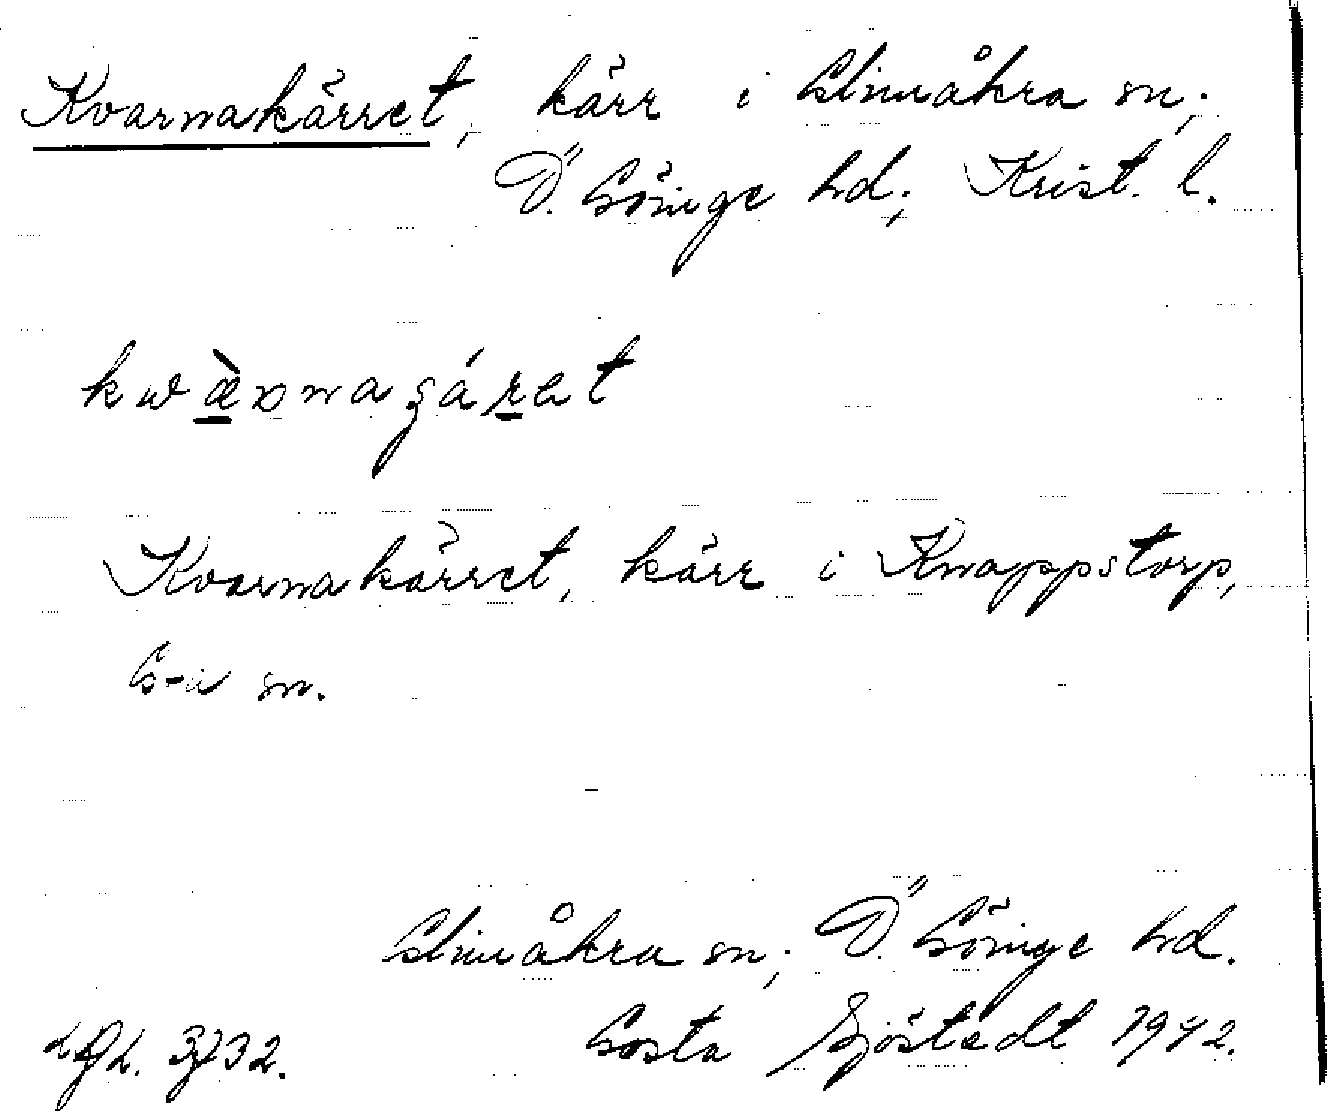 Kvarnakärret, kärr i Glimåkra sn;
Ö. Göinge hd; Krist. l.
Kvarnakärret, kärr i Knappstorp,
G-a sn.
Glimåkra sn; Ö. Göinge hd.
Gösta Sjöstedt 1942.